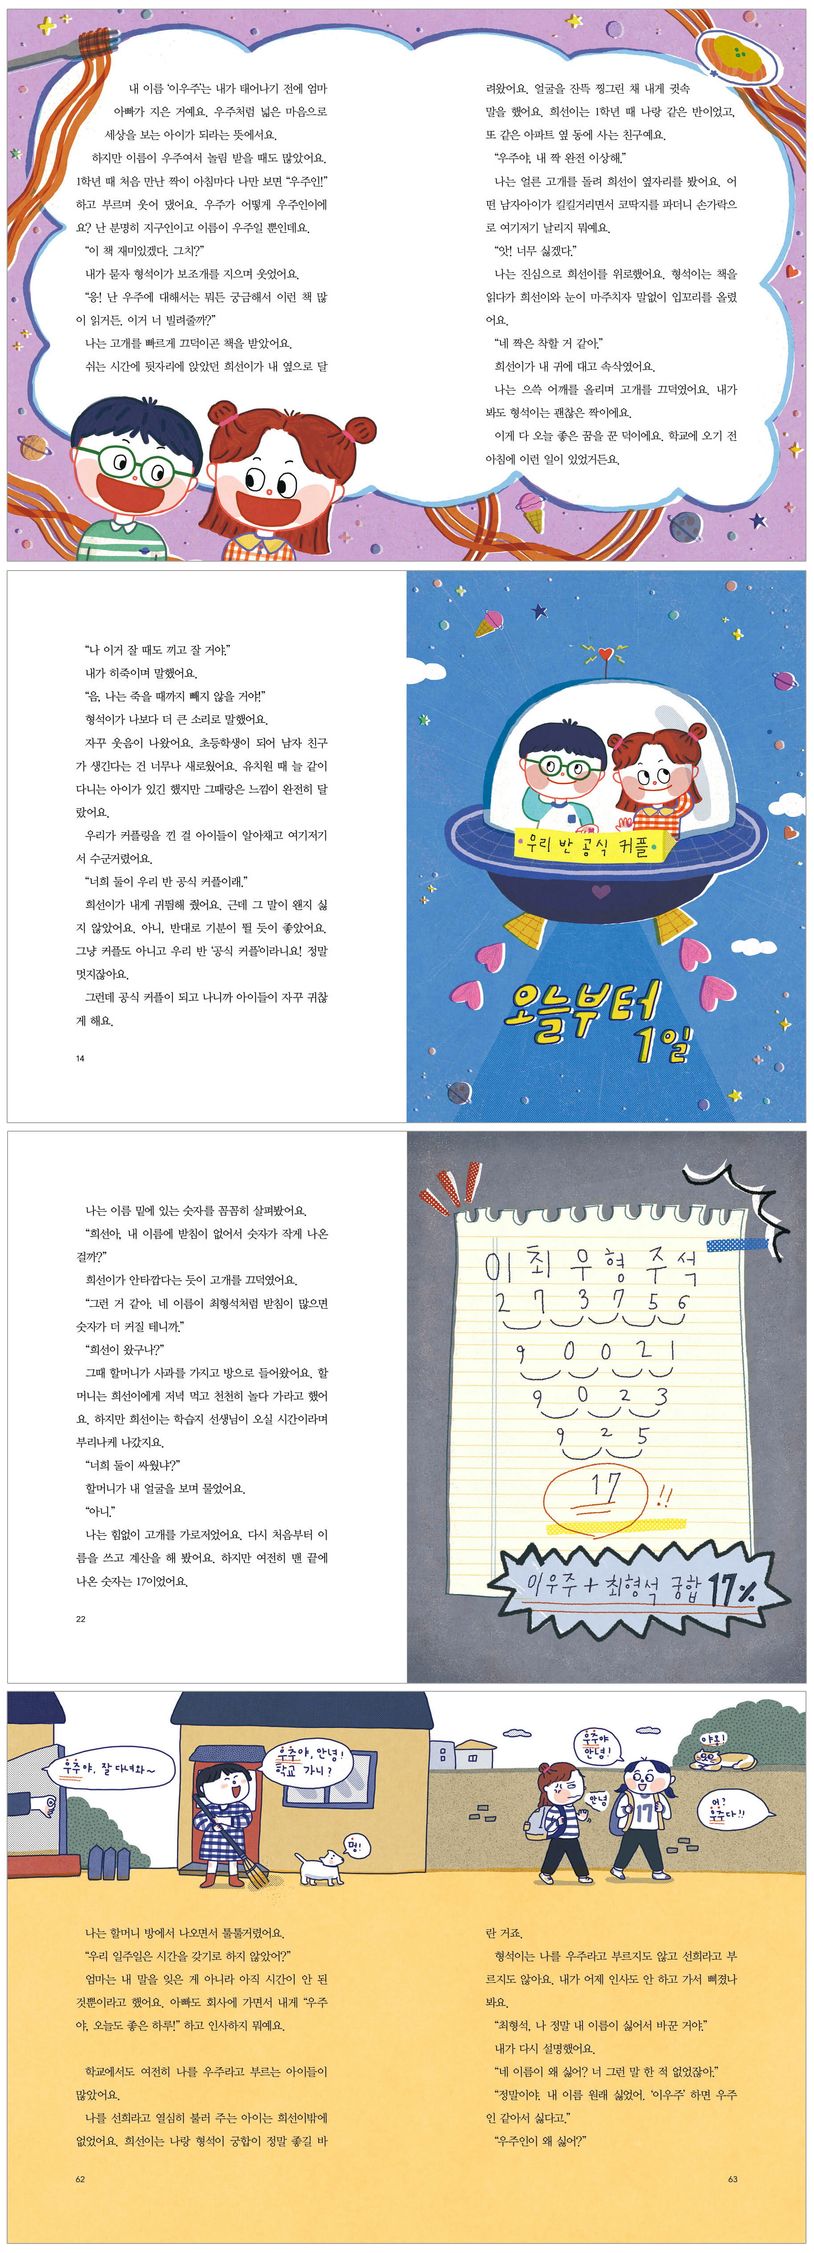 내 이름 '이우주'는 내가 태어나기 전에 엄마
아빠가 지은 거예요. 우주처럼 넓은 마음으로
세상을 보는 아이가 되라는 뜻에서요.
하지만 이름이 우주여서 놀림 받을 때도 많았어요.
1학년 때 처음 만난 짝이 아침마다 나만 보면 "우주인!"
하고 부르며 웃어 댔어요. 우주가 어떻게 우주인이에
요? 난 분명히 지구인이고 이름이 우주일 뿐인데요.
"이 책 재미있겠다. 그치?"
내가 묻자 형석이가 보조개를 지으며 웃었어요.
"응! 난 우주에 대해서는 뭐든 궁금해서 이런 책 많
이 읽거든. 이거 너 빌려줄까?"
나는 고개를 빠르게 끄덕이곤 책을 받았어요.
쉬는 시간에 뒷자리에 앉았던 희선이가 내 옆으로 달
려왔어요. 얼굴을 잔뜩 찡그린 채 내게 귓속
말을 했어요. 희선이는 1학년 때 나랑 같은 반이었고,
또 같은 아파트 옆 동에 사는 친구예요.
"우주야, 내 짝 완전 이상해."
나는 얼른 고개를 돌려 희선이 옆자리를 봤어요. 어
떤 남자아이가 킬킬거리면서 코딱지를 파더니 손가락으
로 여기저기 날리지 뭐예요.
"앗! 너무 싫겠다."
나는 진심으로 희선이를 위로했어요. 형석이는 책을
읽다가 희선이와 눈이 마주치자 말없이 입꼬리를 올렸
어요.
"네 짝은 착할 거 같아."
희선이가 내 귀에 대고 속삭였어요.
나는 으쓱 어깨를 올리며 고개를 끄덕였어요. 내가
봐도 형석이는 괜찮은 짝이에요.
이게 다 오늘 좋은 꿈을 꾼 덕이에요. 학교에 오기 전
아침에 이런 일이 있었거든요.
"나 이거 잘 때도 끼고 잘 거야."
내가 히죽이며 말했어요.
"음, 나는 죽을 때까지 빼지 않을 거야!"
형석이가 나보다 더 큰 소리로 말했어요.
자꾸 웃음이 나왔어요. 초등학생이 되어 남자 친구
가 생긴다는 건 너무나 새로웠어요. 유치원 때 늘 같이
다니는 아이가 있긴 했지만 그때랑은 느낌이 완전히 달
랐어요.
우리가 커플링을 낀 걸 아이들이 알아채고 여기저기
서 수군거렸어요.
"너희 둘이 우리 반 공식 커플이래."
희선이가 내게 귀띔해 줬어요. 근데 그 말이 왠지 싫
지 않았어요. 아니, 반대로 기분이 뛸 듯이 좋았어요.
그냥 커플도 아니고 우리 반 '공식 커플'이라니요! 정말
멋지잖아요.
그런데 공식 커플이 되고 나니까 아이들이 자꾸 귀찮
게 해요.
14
우리 반 공식 커플
오늘부터
1일
나는 이름 밑에 있는 숫자를 꼼꼼히 살펴봤어요.
"희선아, 내 이름에 받침이 없어서 숫자가 작게 나온
걸까?"
희선이가 안타깝다는 듯이 고개를 끄덕였어요.
"그런 거 같아. 네 이름이 최형석처럼 받침이 많으면
숫자가 더 커질 테니까."
"희선이 왔구나?"
그때 할머니가 사과를 가지고 방으로 들어왔어요. 할
머니는 희선이에게 저녁 먹고 천천히 놀다 가라고 했어
요. 하지만 희선이는 학습지 선생님이 오실 시간이라며
부리나케 나갔지요.
"너희 둘이 싸웠냐?"
할머니가 내 얼굴을 보며 물었어요.
"아니."
나는 힘없이 고개를 가로저었어요. 다시 처음부터 이
름을 쓰고 계산을 해 봤어요. 하지만 여전히 맨 끝에
나온 숫자는 17이었어요.
22
이 최 우 형 주 석
2 7 3 7 5 6
9 0 0 2 1
9 0 2 3
9 2 5
17 !!
이우주 + 최형석 궁합 17%
우주야, 잘 다녀와~
우주야, 안녕!
학교 가니?
멍!
우주야
안녕!
안녕
17
야옹!
어?
우주다!!
나는 할머니 방에서 나오면서 툴툴거렸어요.
"우리 일주일은 시간을 갖기로 하지 않았어?"
엄마는 내 말을 잊은 게 아니라 아직 시간이 안 된
것뿐이라고 했어요. 아빠도 회사에 가면서 내게 "우주
야, 오늘도 좋은 하루!" 하고 인사하지 뭐예요.
학교에서도 여전히 나를 우주라고 부르는 아이들이
많았어요.
나를 선희라고 열심히 불러 주는 아이는 희선이밖에
없었어요. 희선이는 나랑 형석이 궁합이 정말 좋길 바
62
란 거죠.
형석이는 나를 우주라고 부르지도 않고 선희라고 부
르지도 않아요. 내가 어제 인사도 안 하고 가서 삐졌나
봐요.
"최형석, 나 정말 내 이름이 싫어서 바꾼 거야."
내가 다시 설명했어요.
"네 이름이 왜 싫어? 너 그런 말 한 적 없었잖아."
"정말이야. 내 이름 원래 싫었어. '이우주' 하면 우주
인 같아서 싫다고."
"우주인이 왜 싫어?"
63